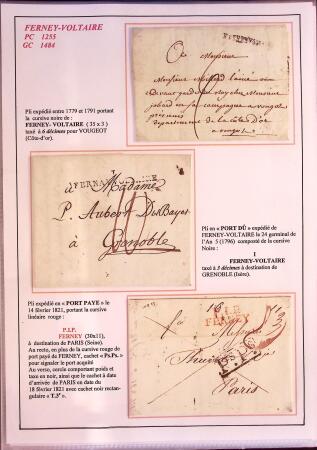 FERNEY-VOLTAIRE
PC 1255
GC 1484
Pli expédié entre 1779 et 1791 portant
la cursive noire de :
FERNEY-VOLTAIRE (35 x 3)
taxé à 6 décimes pour VOUGEOT
(Côte-d'or).
à Monsieur
département de la côte d'or
à Madame
P. Aubert DuBayet
à Grenoble
Pli en « PORT DÛ » expédié de
FERNEY-VOLTAIRE le 24 germinal de
l'An 5 (1796) composté de la cursive
Noire :
1
FERNEY-VOLTAIRE
taxé à 3 décimes à destination de
GRENOBLE (Isère).
Pli expédié en « PORT PAYE » le
14 février 1821, portant la cursive
linéaire rouge :
P.1.P.
FERNEY (30x11),
à destination de PARIS (Seine).
Au recto, en plus de la cursive rouge de
port payé de FERNEY, cachet « Ps.Ps. »
pour signaler le port acquitté
Au verso, cercle comportant poids et
taxe en noir, ainsi que le cachet à date
d'arrivée de PARIS en date du
18 février 1821 avec cachet noir rectan-
gulaire « T.3e ».
P.1.P.
FERNEY
Paris